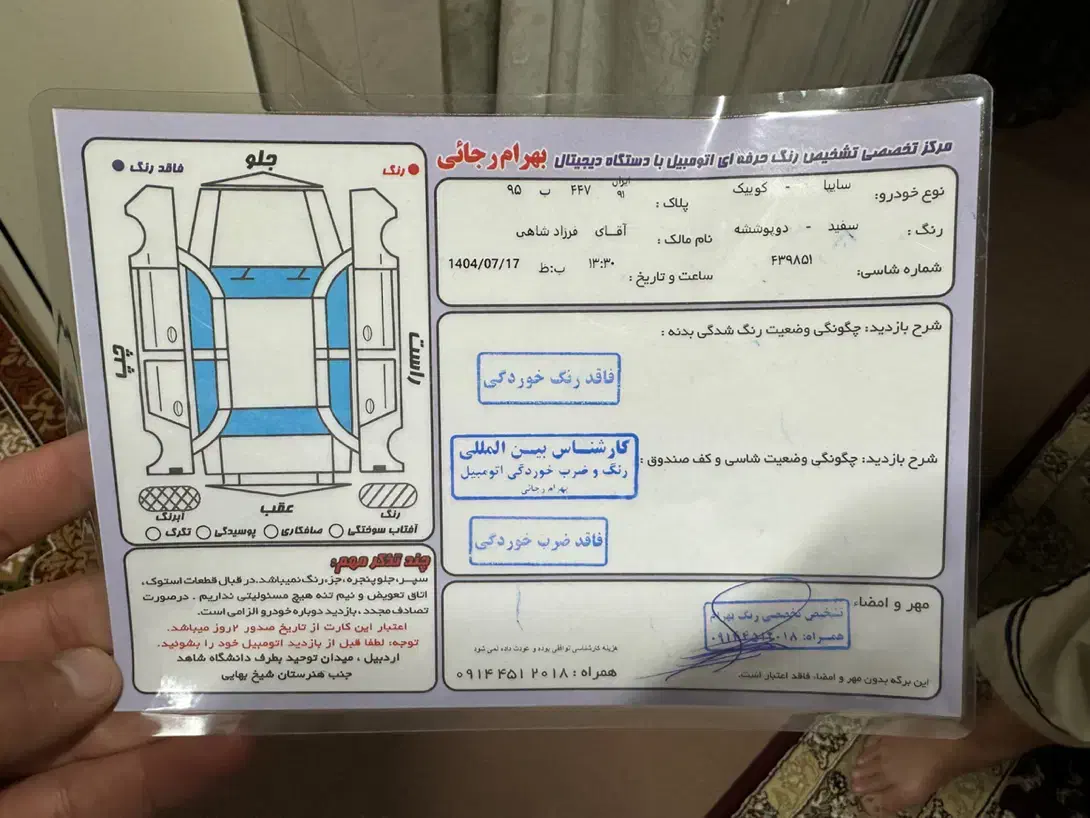 مرکز تخصصی تشخیص رنگ حرفه ای اتومبیل با دستگاه دیجیتال بهرام رجائی
نوع خودرو: سایپا - کوییک پلاک : ایران ۹۱ ۴۴۷ ب ۹۵
رنگ : سفید - دوپوششه نام مالک : آقای فرزاد شاهی
شماره شاسی: ۴۳۹۸۵۱ ساعت و تاریخ : ۱۳:۳۰ ب:ظ 1404/07/17
شرح بازدید: چگونگی وضعیت رنگ شدگی بدنه :
فاقد رنگ خوردگی
شرح بازدید: چگونگی وضعیت شاسی و کف صندوق :
کارشناس بین المللی
رنگ و ضرب خوردگی اتومبیل
بهرام رجائی
فاقد ضرب خوردگی
مهر و امضاء
تشخیص تخصصی رنگ بهرام
همراه: ۰۹۱۴۴۵۱۲۰۱۸
هزینه کارشناسی توافقی بوده و عودت داده نمی شود
همراه : ۰۹۱۴ ۴۵۱ ۲۰۱۸
این برگه بدون مهر و امضاء فاقد اعتبار است.
رنگ
جلو
فاقد رنگ
راست
چپ
عقب
رنگ
آبرنگ
آفتاب سوختگی صافکاری پوسیدگی تگرگ
چند تذکر مهم:
سپر، جلوپنجره، جزء رنگ نمیباشد. در قبال قطعات استوک،
اتاق تعویض و نیم تنه هیچ مسئولیتی نداریم . درصورت
تصادف مجدد، بازدید دوباره خودرو الزامی است.
اعتبار این کارت از تاریخ صدور ۲ روز میباشد.
توجه: لطفا قبل از بازدید اتومبیل خود را بشوئید.
اردبیل ، میدان توحید بطرف دانشگاه شاهد
جنب هنرستان شیخ بهایی